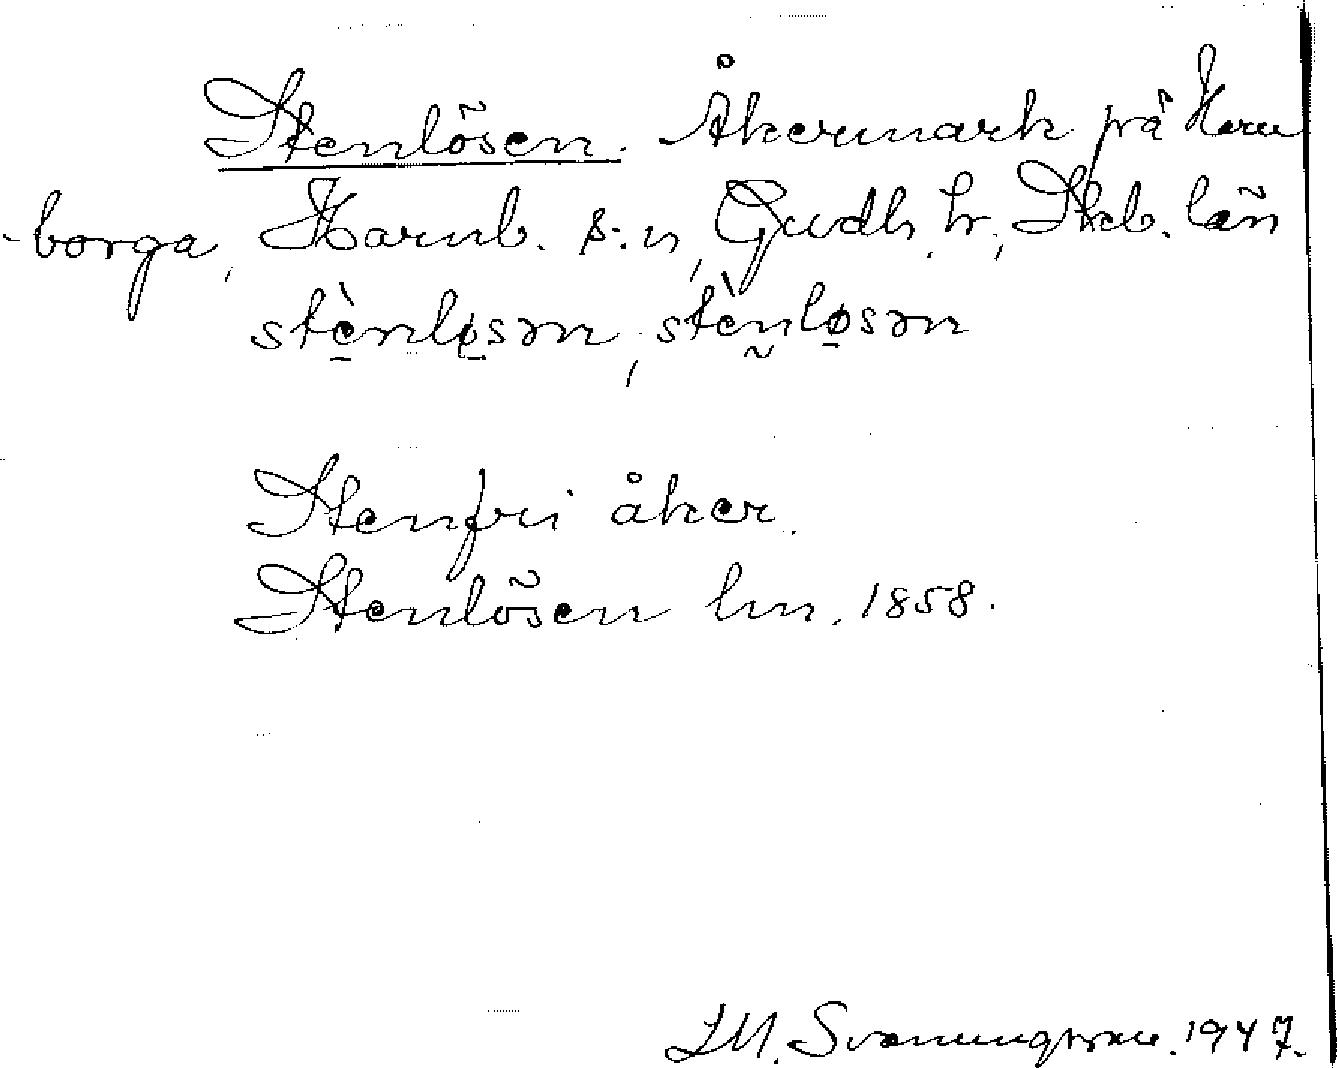 Stenlösen. Åkermark på Horn
-borga, Hornb. s:n, Gudh. h., Skb. län
stè̱nlø̱sən, stèn̰lø̱sən
Stenfri åker.
Stenlösen lm. 1858.
I. M. Svanungsson. 1947.